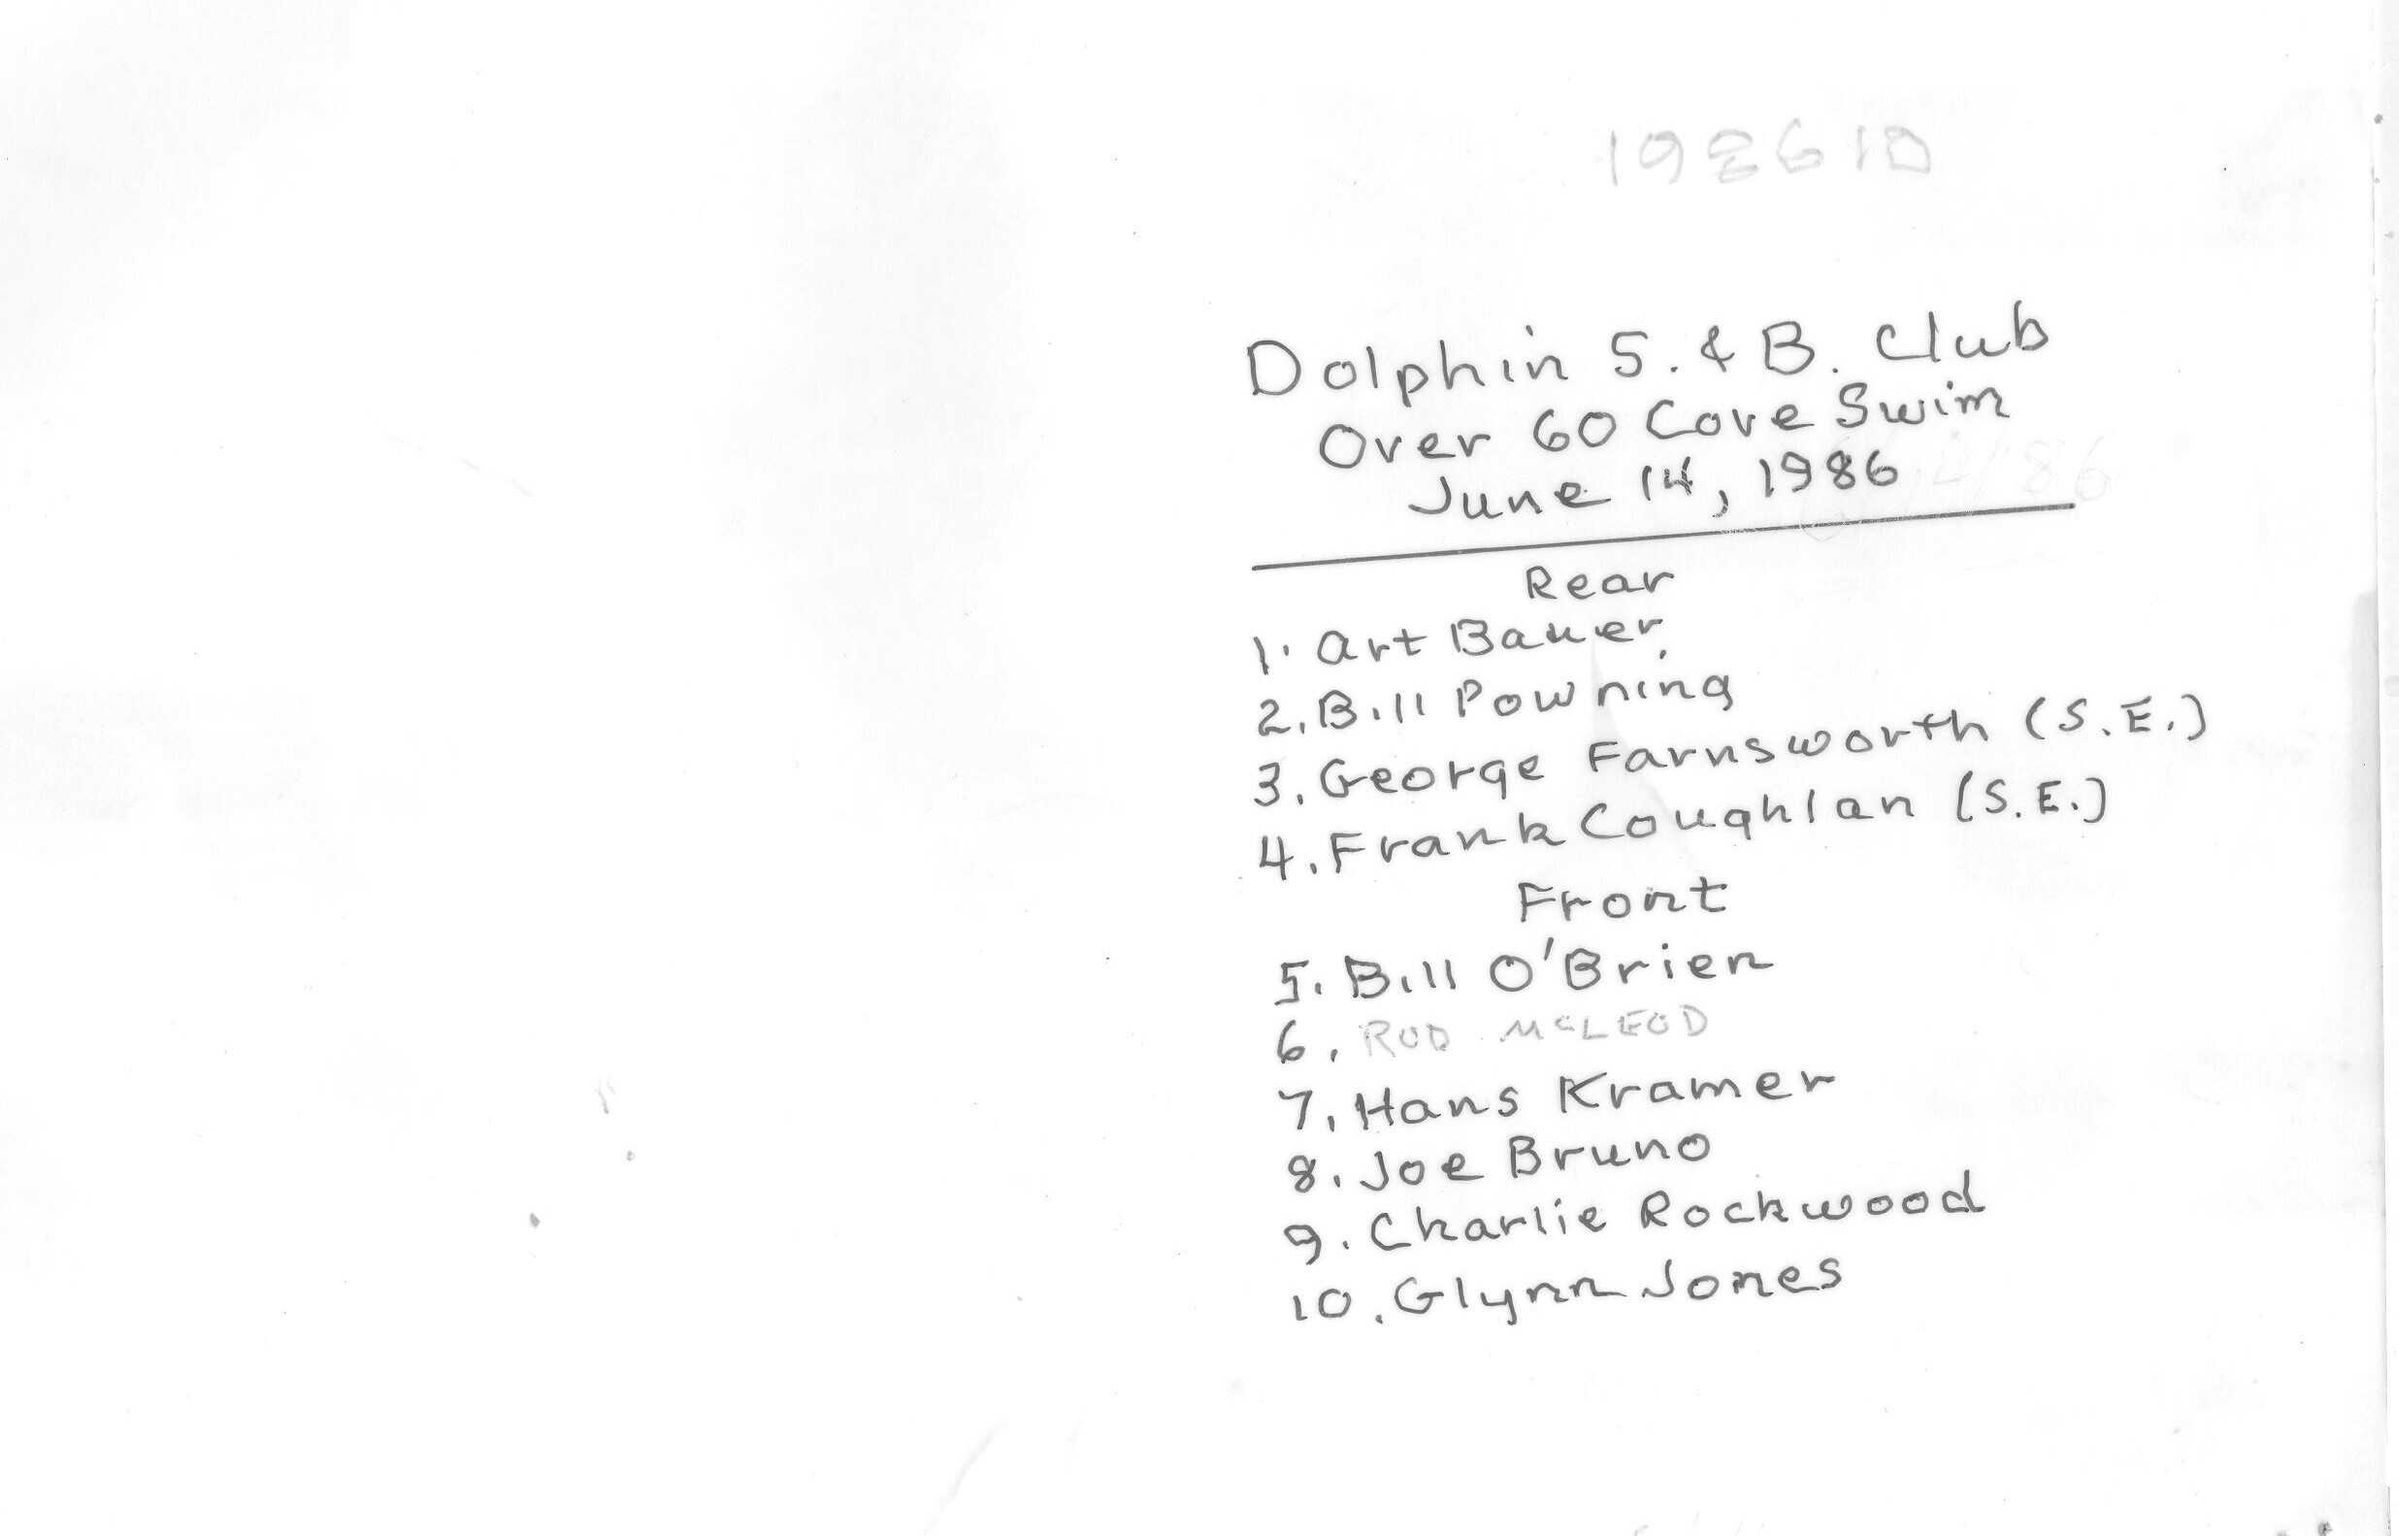 198610
Dolphin S. & B. Club
Over 60 Cove Swim
June 14, 1986
Rear
1. Art Bauer
2. Bill Powning
3. George Farnsworth (S.E.)
4. Frank Coughlan (S.E.)
Front
5. Bill O'Brien
6. ROD McLEOD
7. Hans Kramer
8. Joe Bruno
9. Charlie Rockwood
10. Glynn Jones